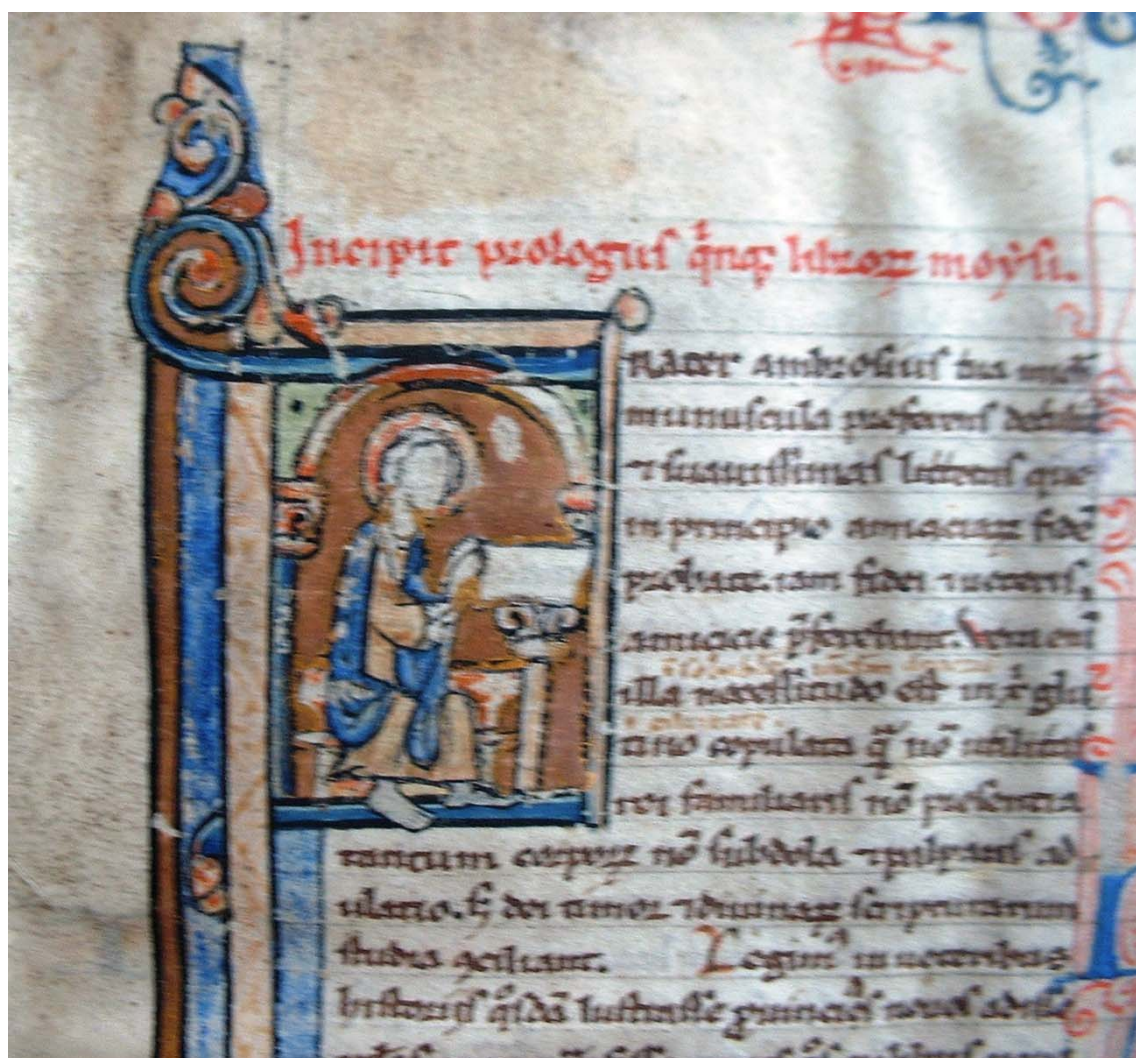 Incipit prologus q̇inq; libroꝝ moẏsi.
RATER ambrosius tua mͥ
munuscula preferens detulit
⁊ suauissimas litteras que
in principio amiciciaꝝ fidē
probate iam fidei ⁊ ueteris
amicicie p̄ferebant. Vera eni
illa necessitudo est ⁊ xp̄i glu
tino copulata q̄ nō utilitas
rei familiaris nō presentia
tantum corpoꝝ nō subdola ⁊ palpans ad
ulatio. sꝫ dei timor ⁊ diuinaꝝ scripturarum
studia ꝯciliant. Legimꝰ in ueteribus
historiis q̊sdā lustrasse ꝓuincias nouos adisse